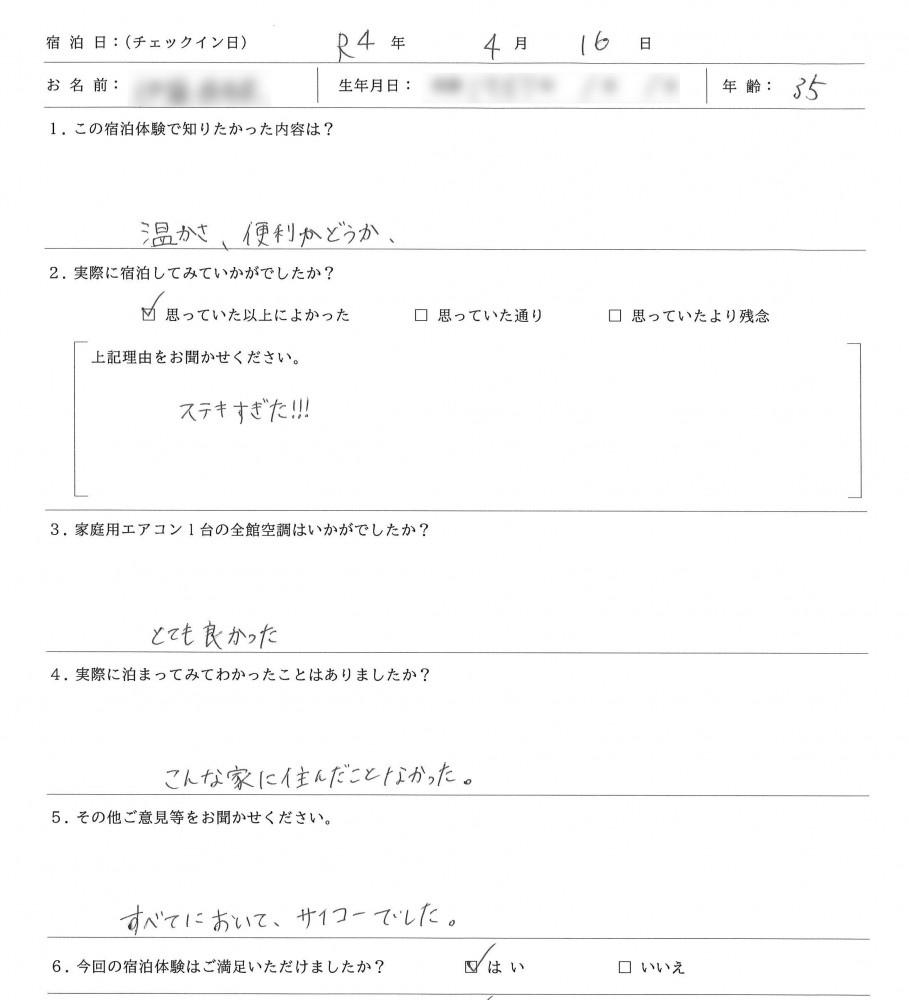 宿泊日：(チェックイン日) R4年 4月 16日
お名前： 生年月日： 年齢：35
1．この宿泊体験で知りたかった内容は？
温かさ、便利かどうか、
2．実際に宿泊してみていかがでしたか？
☑ 思っていた以上によかった □ 思っていた通り □ 思っていたより残念
上記理由をお聞かせください。
ステキすぎた!!!
3．家庭用エアコン1台の全館空調はいかがでしたか？
とても良かった
4．実際に泊まってみてわかったことはありましたか？
こんな家に住んだことなかった。
5．その他ご意見等をお聞かせください。
すべてにおいて、サイコーでした。
6．今回の宿泊体験はご満足いただけましたか？ ☑ はい □ いいえ